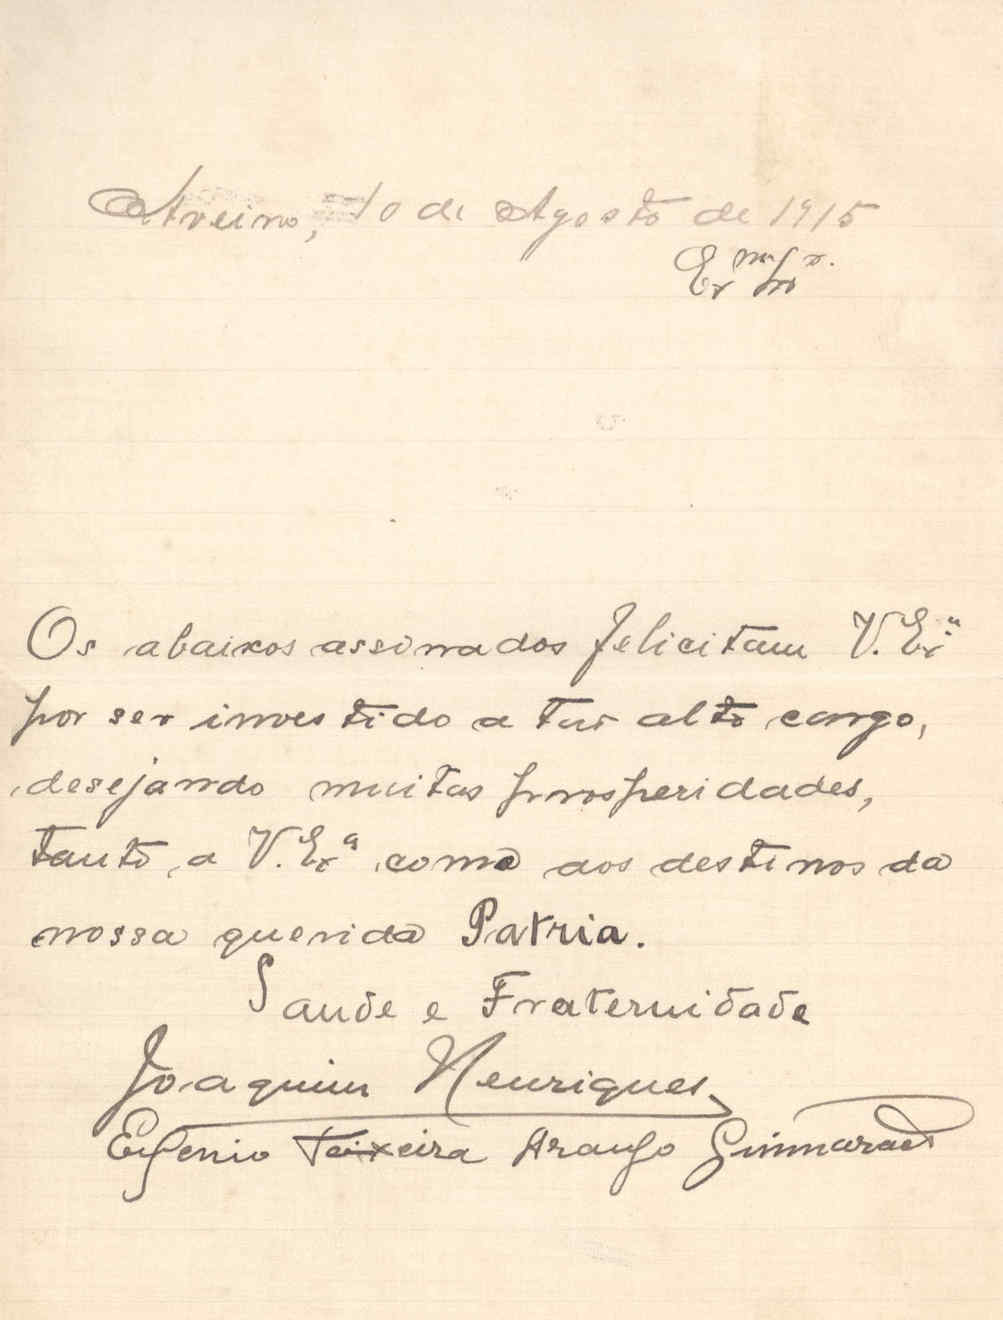 Aveiro, 10 de Agosto de 1915
Ex.mo Sr.
Os abaixos assinados felicitam V. Ex.a
por ser investido a tão alto cargo,
desejando muitas prosperidades,
tanto a V. Ex.a como aos destinos da
nossa querida Patria.
Saude e Fraternidade
Joaquim Henriques
Egenio Teixeira Araujo Guimarães